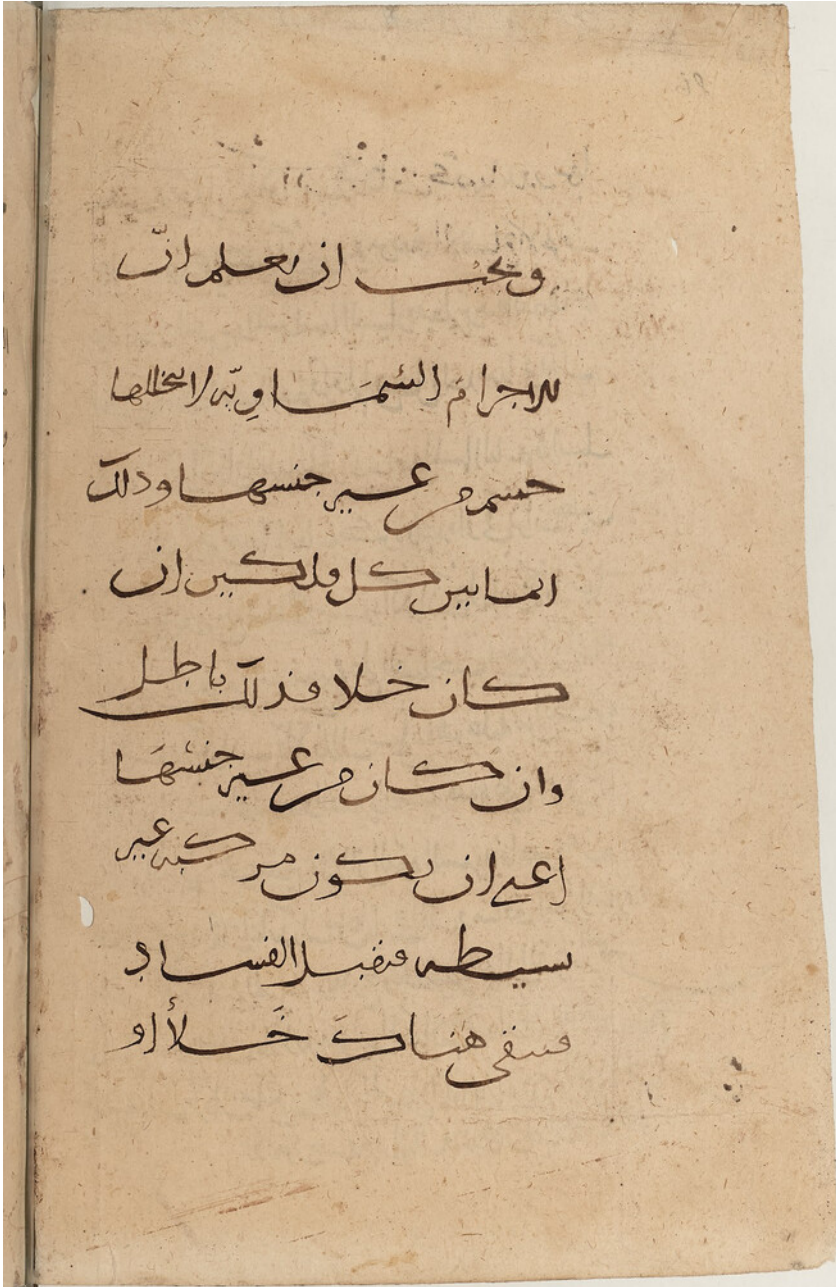 ويجب ان يعلم انّ
للاجرامَ السّمَاوِيّه لا يتخللها
جسم من غير جنسها وذلك
انما بين كل فلكين ان
كان خلا فذلك باطل
وان كان من غير جنسهَا
اعني ان يكون مركبه غير
بسيطه فيقبل الفساد
فيبقى هناكَ خَلأ او